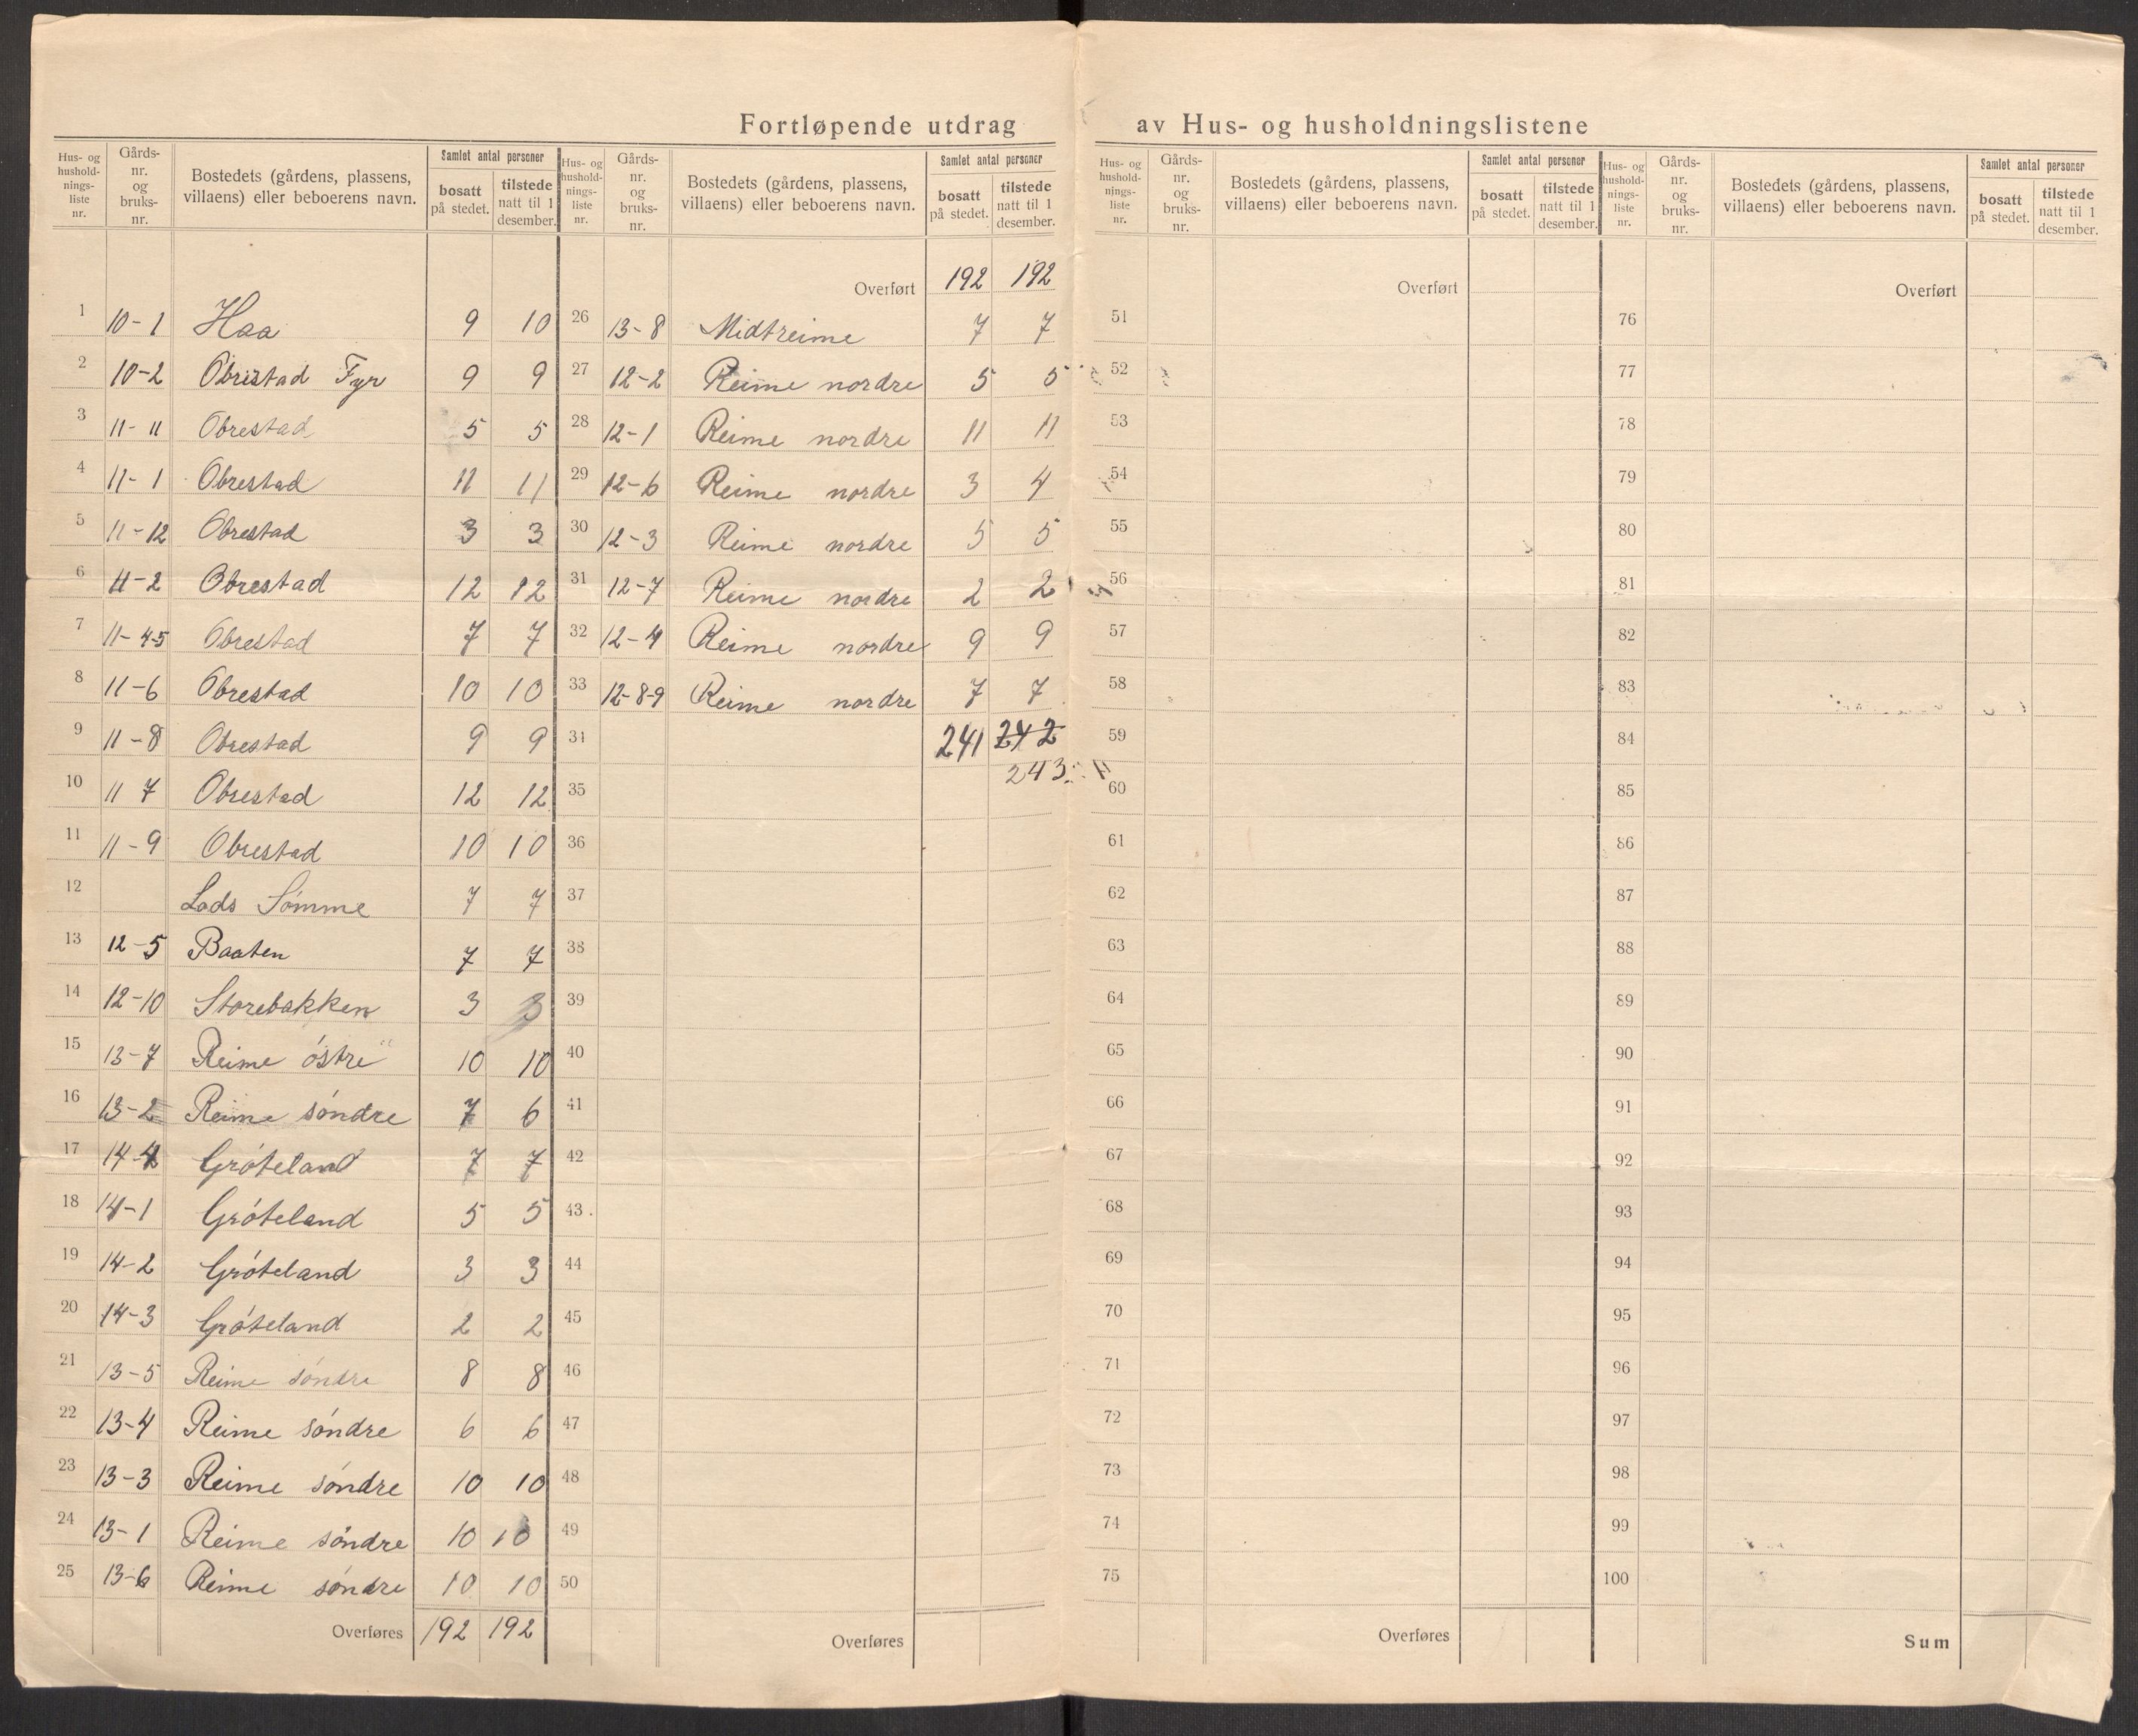 Fortløpende utdrag av Hus- og husholdningslistene
Hus- og hushold- nings- liste nr. | Gårds- nr. og bruks- nr. | Bostedets (gårdens, plassens, villaens) eller beboerens navn. | Samlet antal personer | bosatt på stedet. | tilstede natt til 1 desember.
1 10-1 Haa 9 10
2 10-2 Obristad Fyr 9 9
3 11-11 Obrestad 5 5
4 11-1 Obrestad 11 11
5 11-12 Obrestad 3 3
6 11-2 Obrestad 12 12
7 11-4-5 Obrestad 7 7
8 11-6 Obrestad 10 10
9 11-8 Obrestad 9 9
10 11 7 Obrestad 12 12
11 11-9 Obrestad 10 10
12 Lads Sømme 7 7
13 12-5 Baaten 7 7
14 12-10 Storebakken 3 3
15 13-7 Reime östre 10 10
16 13-2 Reime söndre 7 6
17 14-4 Gróteland 7 7
18 14-1 Gróteland 5 5
19 14-2 Gróteland 3 3
20 14-3 Gróteland 2 2
21 13-5 Reime söndre 8 8
22 13-4 Reime söndre 6 6
23 13-3 Reime söndre 10 10
24 13-1 Reime söndre 10 10
25 13-6 Reime söndre 10 10
Overføres 192 192
Hus- og hushold- nings- liste nr. | Gårds- nr. og bruks- nr. | Bostedets (gårdens, plassens, villaens) eller beboerens navn. | Samlet antal personer | bosatt på stedet. | tilstede natt til 1 desember.
Overført 192 192
26 13-8 Midtreime 7 7
27 12-2 Reime nordre 5 5
28 12-1 Reime nordre 11 11
29 12-6 Reime nordre 3 4
30 12-3 Reime nordre 5 5
31 12-7 Reime nordre 2 2
32 12-4 Reime nordre 9 9
33 12-8-9 Reime nordre 7 7
34 241 242
243
35
36
37
38
39
40
41
42
43
44
45
46
47
48
49
50
Overføres
Hus- og hushold- nings- liste nr. | Gårds- nr. og bruks- nr. | Bostedets (gårdens, plassens, villaens) eller beboerens navn. | Samlet antal personer | bosatt på stedet. | tilstede natt til 1 desember.
Overført
51
52
53
54
55
56
57
58
59
60
61
62
63
64
65
66
67
68
69
70
71
72
73
74
75
Overføres
Hus- og hushold- nings- liste nr. | Gårds- nr. og bruks- nr. | Bostedets (gårdens, plassens, villaens) eller beboerens navn. | Samlet antal personer | bosatt på stedet. | tilstede natt til 1 desember.
Overført
76
77
78
79
80
81
82
83
84
85
86
87
88
89
90
91
92
93
94
95
96
97
98
99
100
Sum